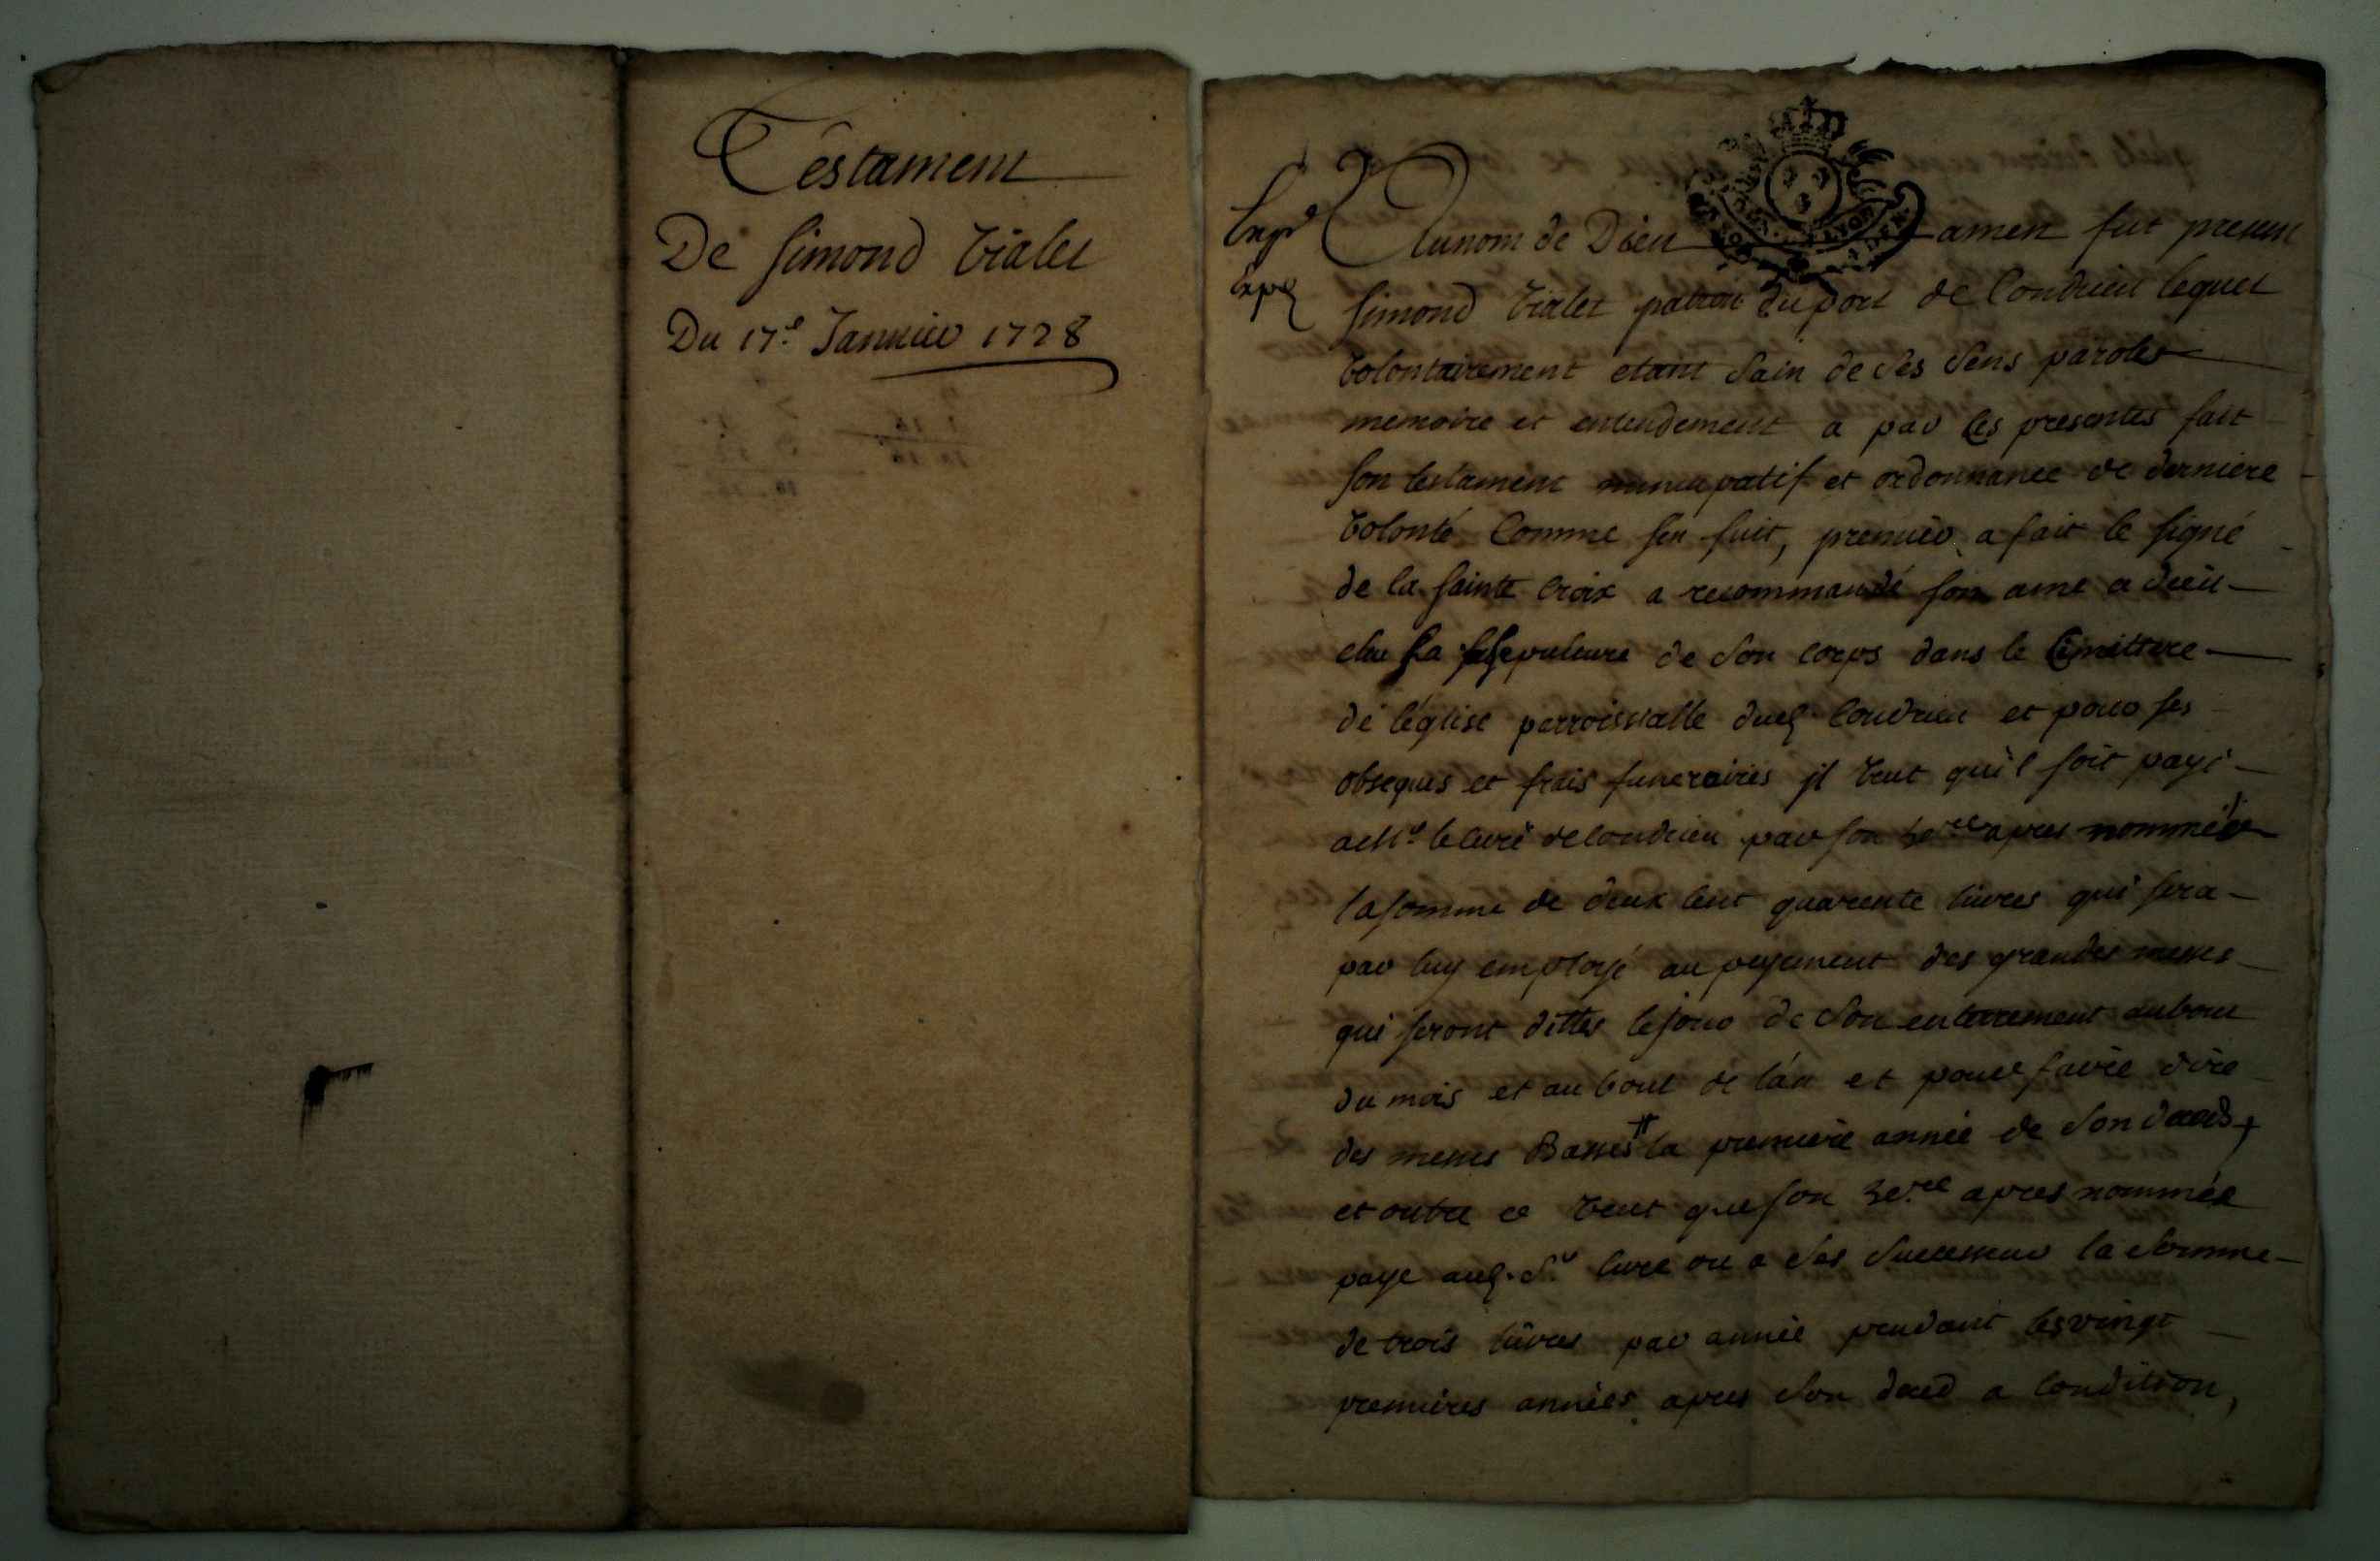 Testament
De Simond Vialet
Du 17.e Januier 1728
Exp.é
Au nom de Dieu amen fut present
Simond Vialet patron du port de Condrieu lequel
volontairement etant sain de ses sens paroles
memoire et entendement a par les presentes fait
son testament nuncupatif et ordonnance de derniere
volonté Comme sen suit, premier a fait le signe
de la sainte Croix a recommandé son ame a dieu
elu sa sepulture de son corps dans le Cimittere
de léglise parroissialle dud. Condrieu et pour ses
obseques et frais funeraires jl veut qu'il soit payé
a Mr. le curé de Condrieu par son her.re apres nommée
la somme de deux cent quarente livres qui sera
par luy employé au payement des grandes messes
qui seront dittes le jour de son enterrement au bout
du mois et au bout de l'an et pour faire dire
des messes Basses la premiere année de son deceds
et outre ce veut que son her.re apres nommée
paye aud. Sr. curé ou a ses successeur la somme
de trois livres par année pendant les vingt
premieres années apres son deced a condition,